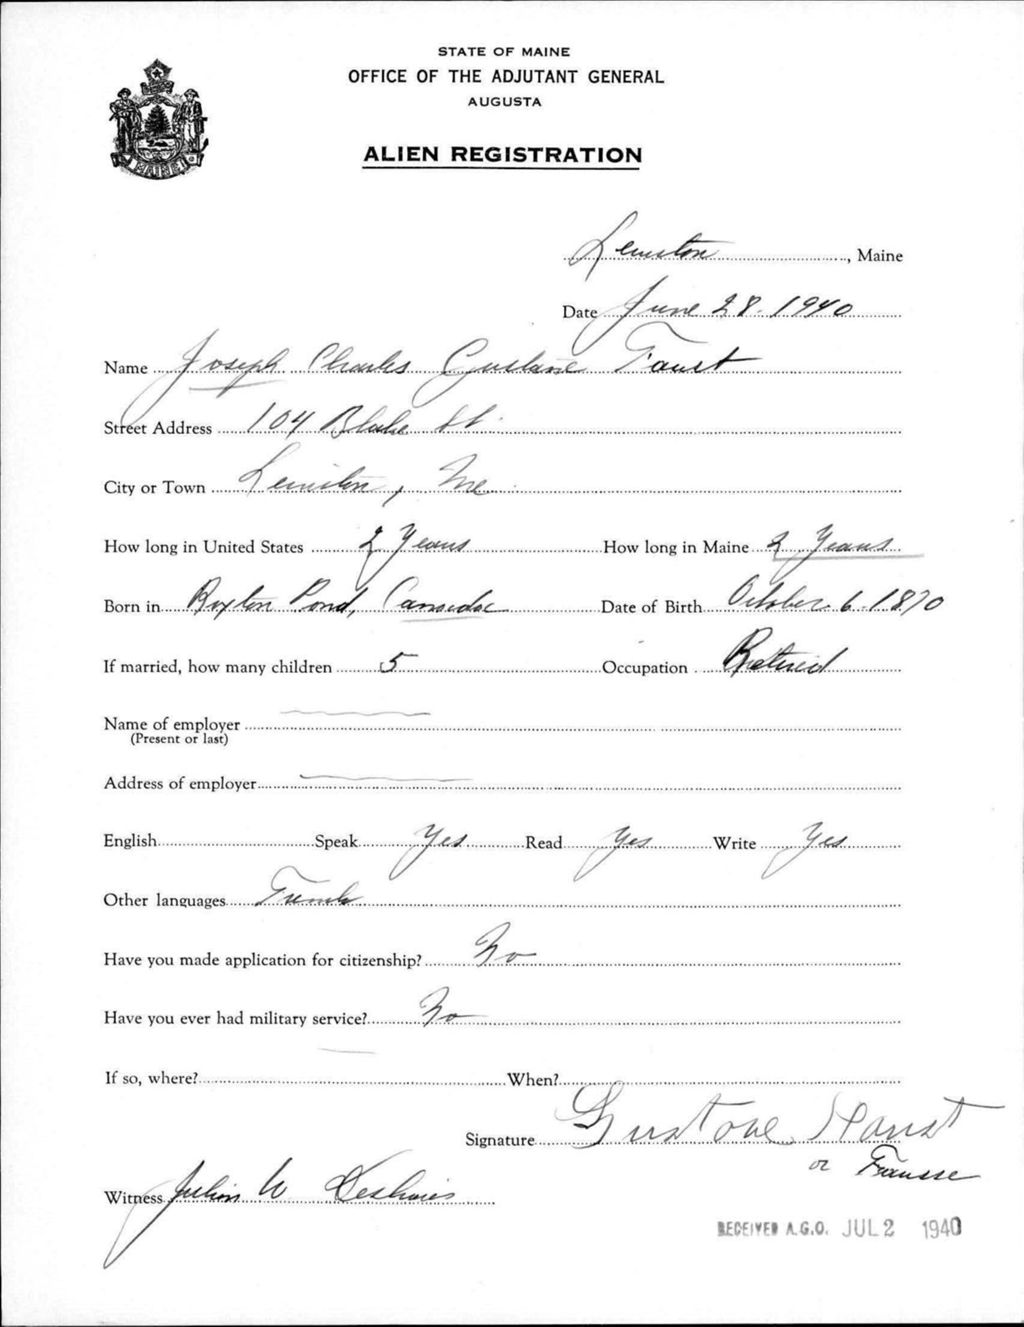 STATE OF MAINE
OFFICE OF THE ADJUTANT GENERAL
AUGUSTA
ALIEN REGISTRATION
MAINE
Lewiston, Maine
Date June 28. 1940
Name Joseph Charles Gustave Faust
Street Address 104 Blake St.
City or Town Lewiston, Me.
How long in United States 2 Years How long in Maine 2 Years
Born in Roxton Pond, Canada Date of Birth October 6. 1870
If married, how many children 5 Occupation Retired
Name of employer
(Present or last)
Address of employer
English Speak Yes Read Yes Write Yes
Other languages French
Have you made application for citizenship? No
Have you ever had military service? No
If so, where? When?
Signature Gustave Faust
or Fausse
Witness W Deshaies
RECEIVED A.G.O. JUL 2 1940